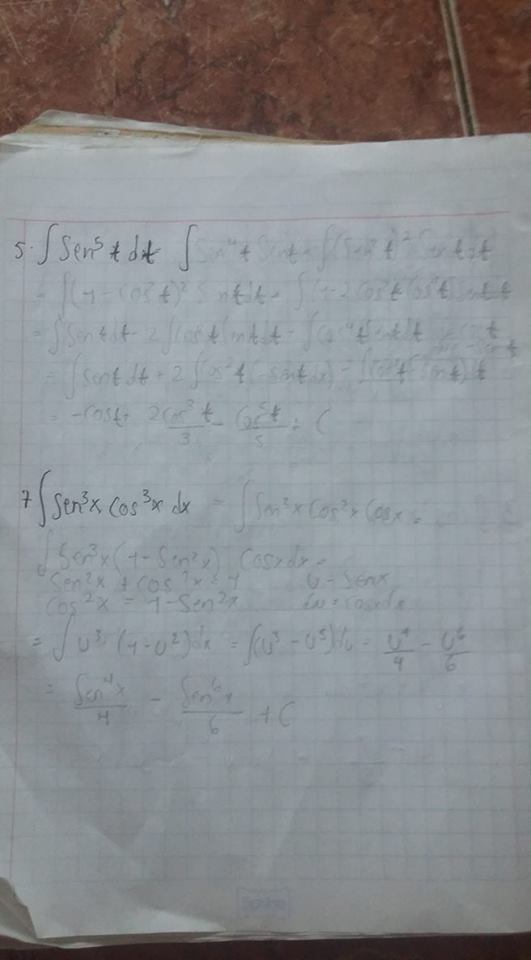 5. ∫ Sen⁵ t dt ∫ Sen⁴ t Sent = ∫(Sen² t)² Sen t dt
= ∫(1 - Cos² t)² Sen t dt = ∫(1 - 2 Cos² t Cos⁴ t) Sen t dt
= ∫ Sen t dt - 2 ∫ Cos² t Sen t dt - ∫ Cos⁴ t Sen t dt
= ∫ Sen t dt + 2 ∫ Cos² t (- Sen t dx) -
= - Cos t + 2 Cos³ t / 3 - Cos⁵ t / 5 + C
7 ∫ Sen³x Cos³x dx = ∫ Sen³x Cos²x Cosx =
∫ Sen³x (1 - Sen²x) Cosx dx =
Sen²x + Cos²x = 1 U = Senx
Cos²x = 1 - Sen²x du = cosx dx
= ∫ U³ (1 - U²) dx = ∫(U³ - U⁵) du = U⁴/4 - U⁶/6
= Sen⁴x / 4 - Sen⁶x / 6 + C